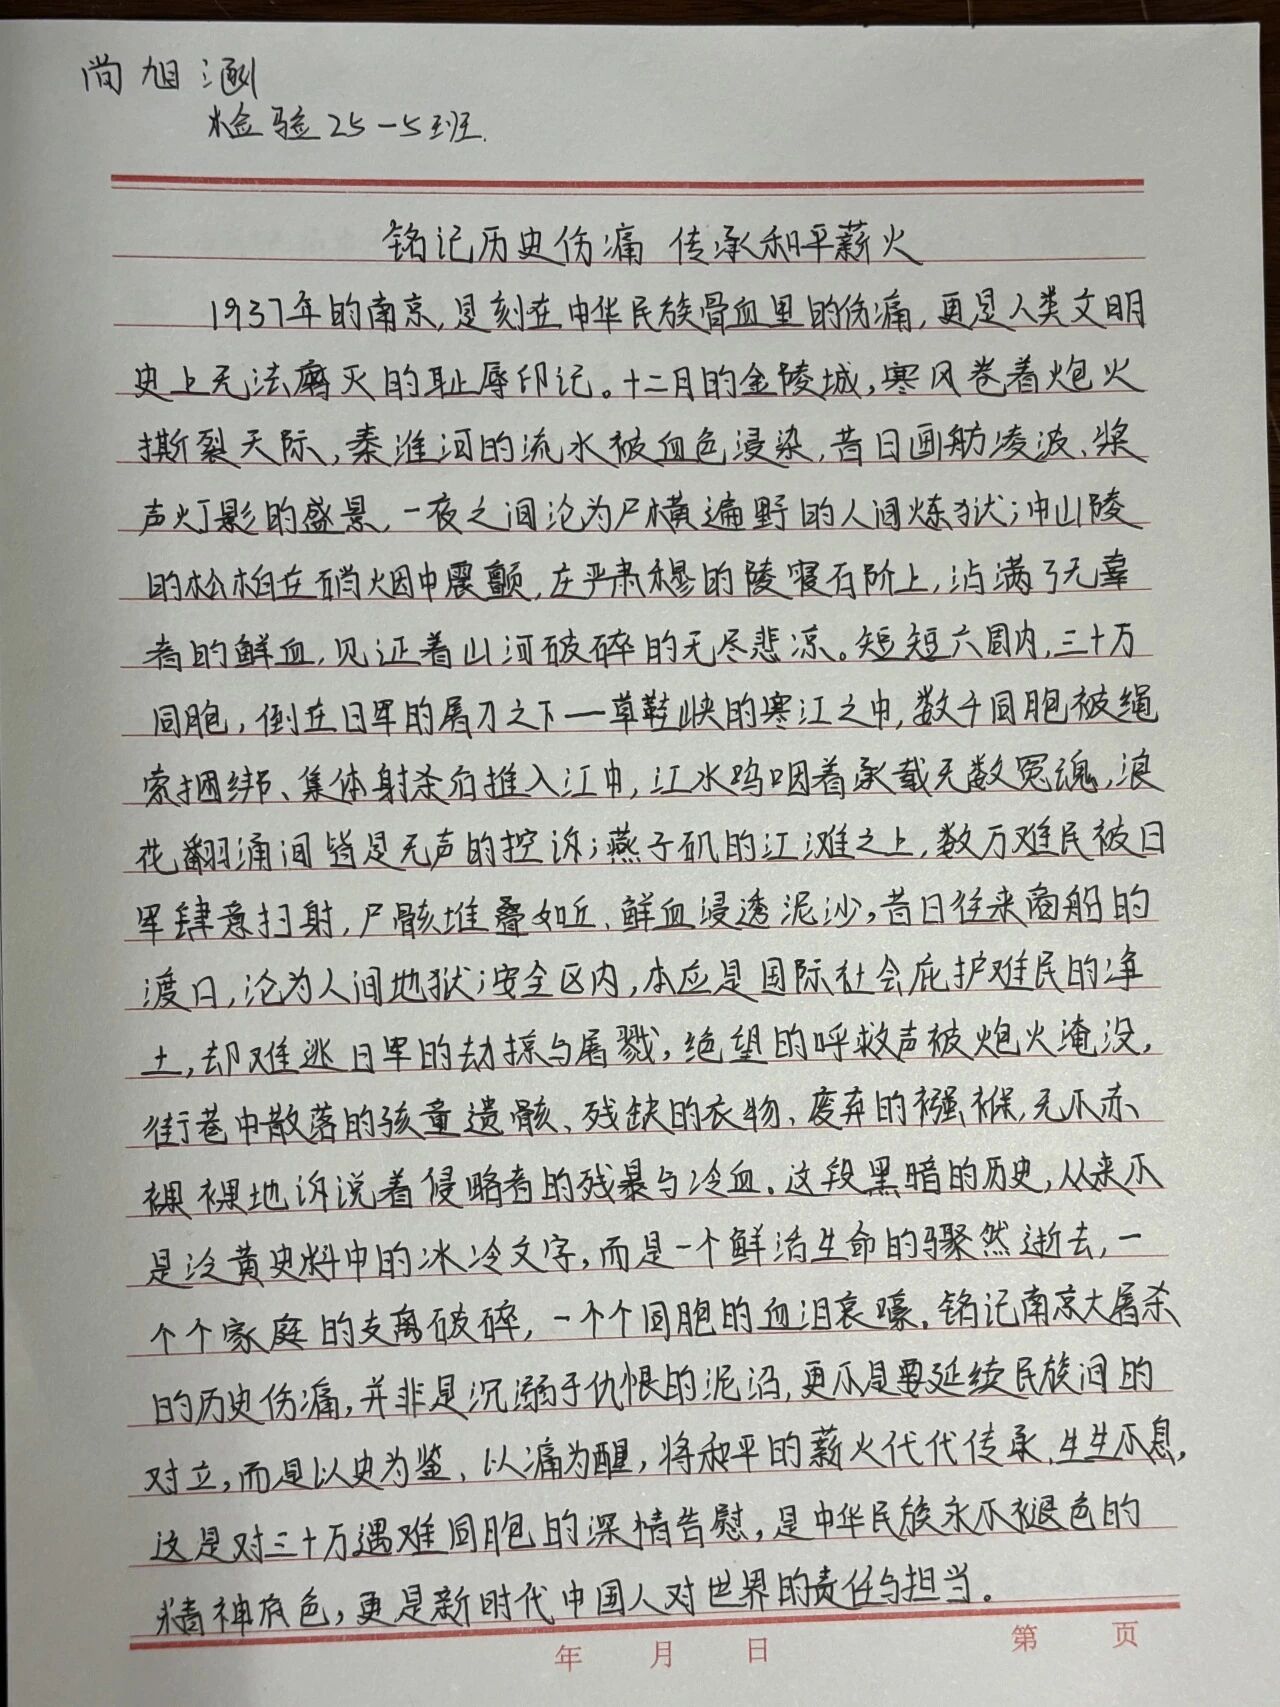 尚旭涵
检验25-5班.
铭记历史伤痛 传承和平薪火
1937年的南京,是刻在中华民族骨血里的伤痛,更是人类文明
史上无法磨灭的耻辱印记。十二月的金陵城,寒风卷着炮火
撕裂天际,秦淮河的流水被血色浸染,昔日画舫凌波、桨
声灯影的盛景,一夜之间沦为尸横遍野的人间炼狱;中山陵
的松柏在硝烟中震颤,庄严肃穆的陵寝石阶上,沾满了无辜
者的鲜血,见证着山河破碎的无尽悲凉。短短六周内,三十万
同胞,倒在日军的屠刀之下—草鞋峡的寒江之中,数千同胞被绳
索捆绑、集体射杀后推入江中,江水呜咽着承载无数冤魂,浪
花翻涌间皆是无声的控诉;燕子矶的江滩之上,数万难民被日
军肆意扫射,尸骸堆叠如丘、鲜血浸透泥沙,昔日往来商船的
渡口,沦为人间地狱;安全区内,本应是国际社会庇护难民的净
土,却难逃日军的劫掠与屠戮,绝望的呼救声被炮火淹没,
街巷中散落的孩童遗骸、残缺的衣物、废弃的襁褓,无不赤
裸裸地诉说着侵略者的残暴与冷血。这段黑暗的历史,从来不
是泛黄史料中的冰冷文字,而是一个鲜活生命的骤然逝去,一
个个家庭的支离破碎,一个个同胞的血泪哀嚎。铭记南京大屠杀
的历史伤痛,并非是沉溺于仇恨的泥沼,更不是要延续民族间的
对立,而是以史为鉴、以痛为醒,将和平的薪火代代传承、生生不息,
这是对三十万遇难同胞的深情告慰,是中华民族永不褪色的
精神底色,更是新时代中国人对世界的责任与担当。
年 月 日 第 页